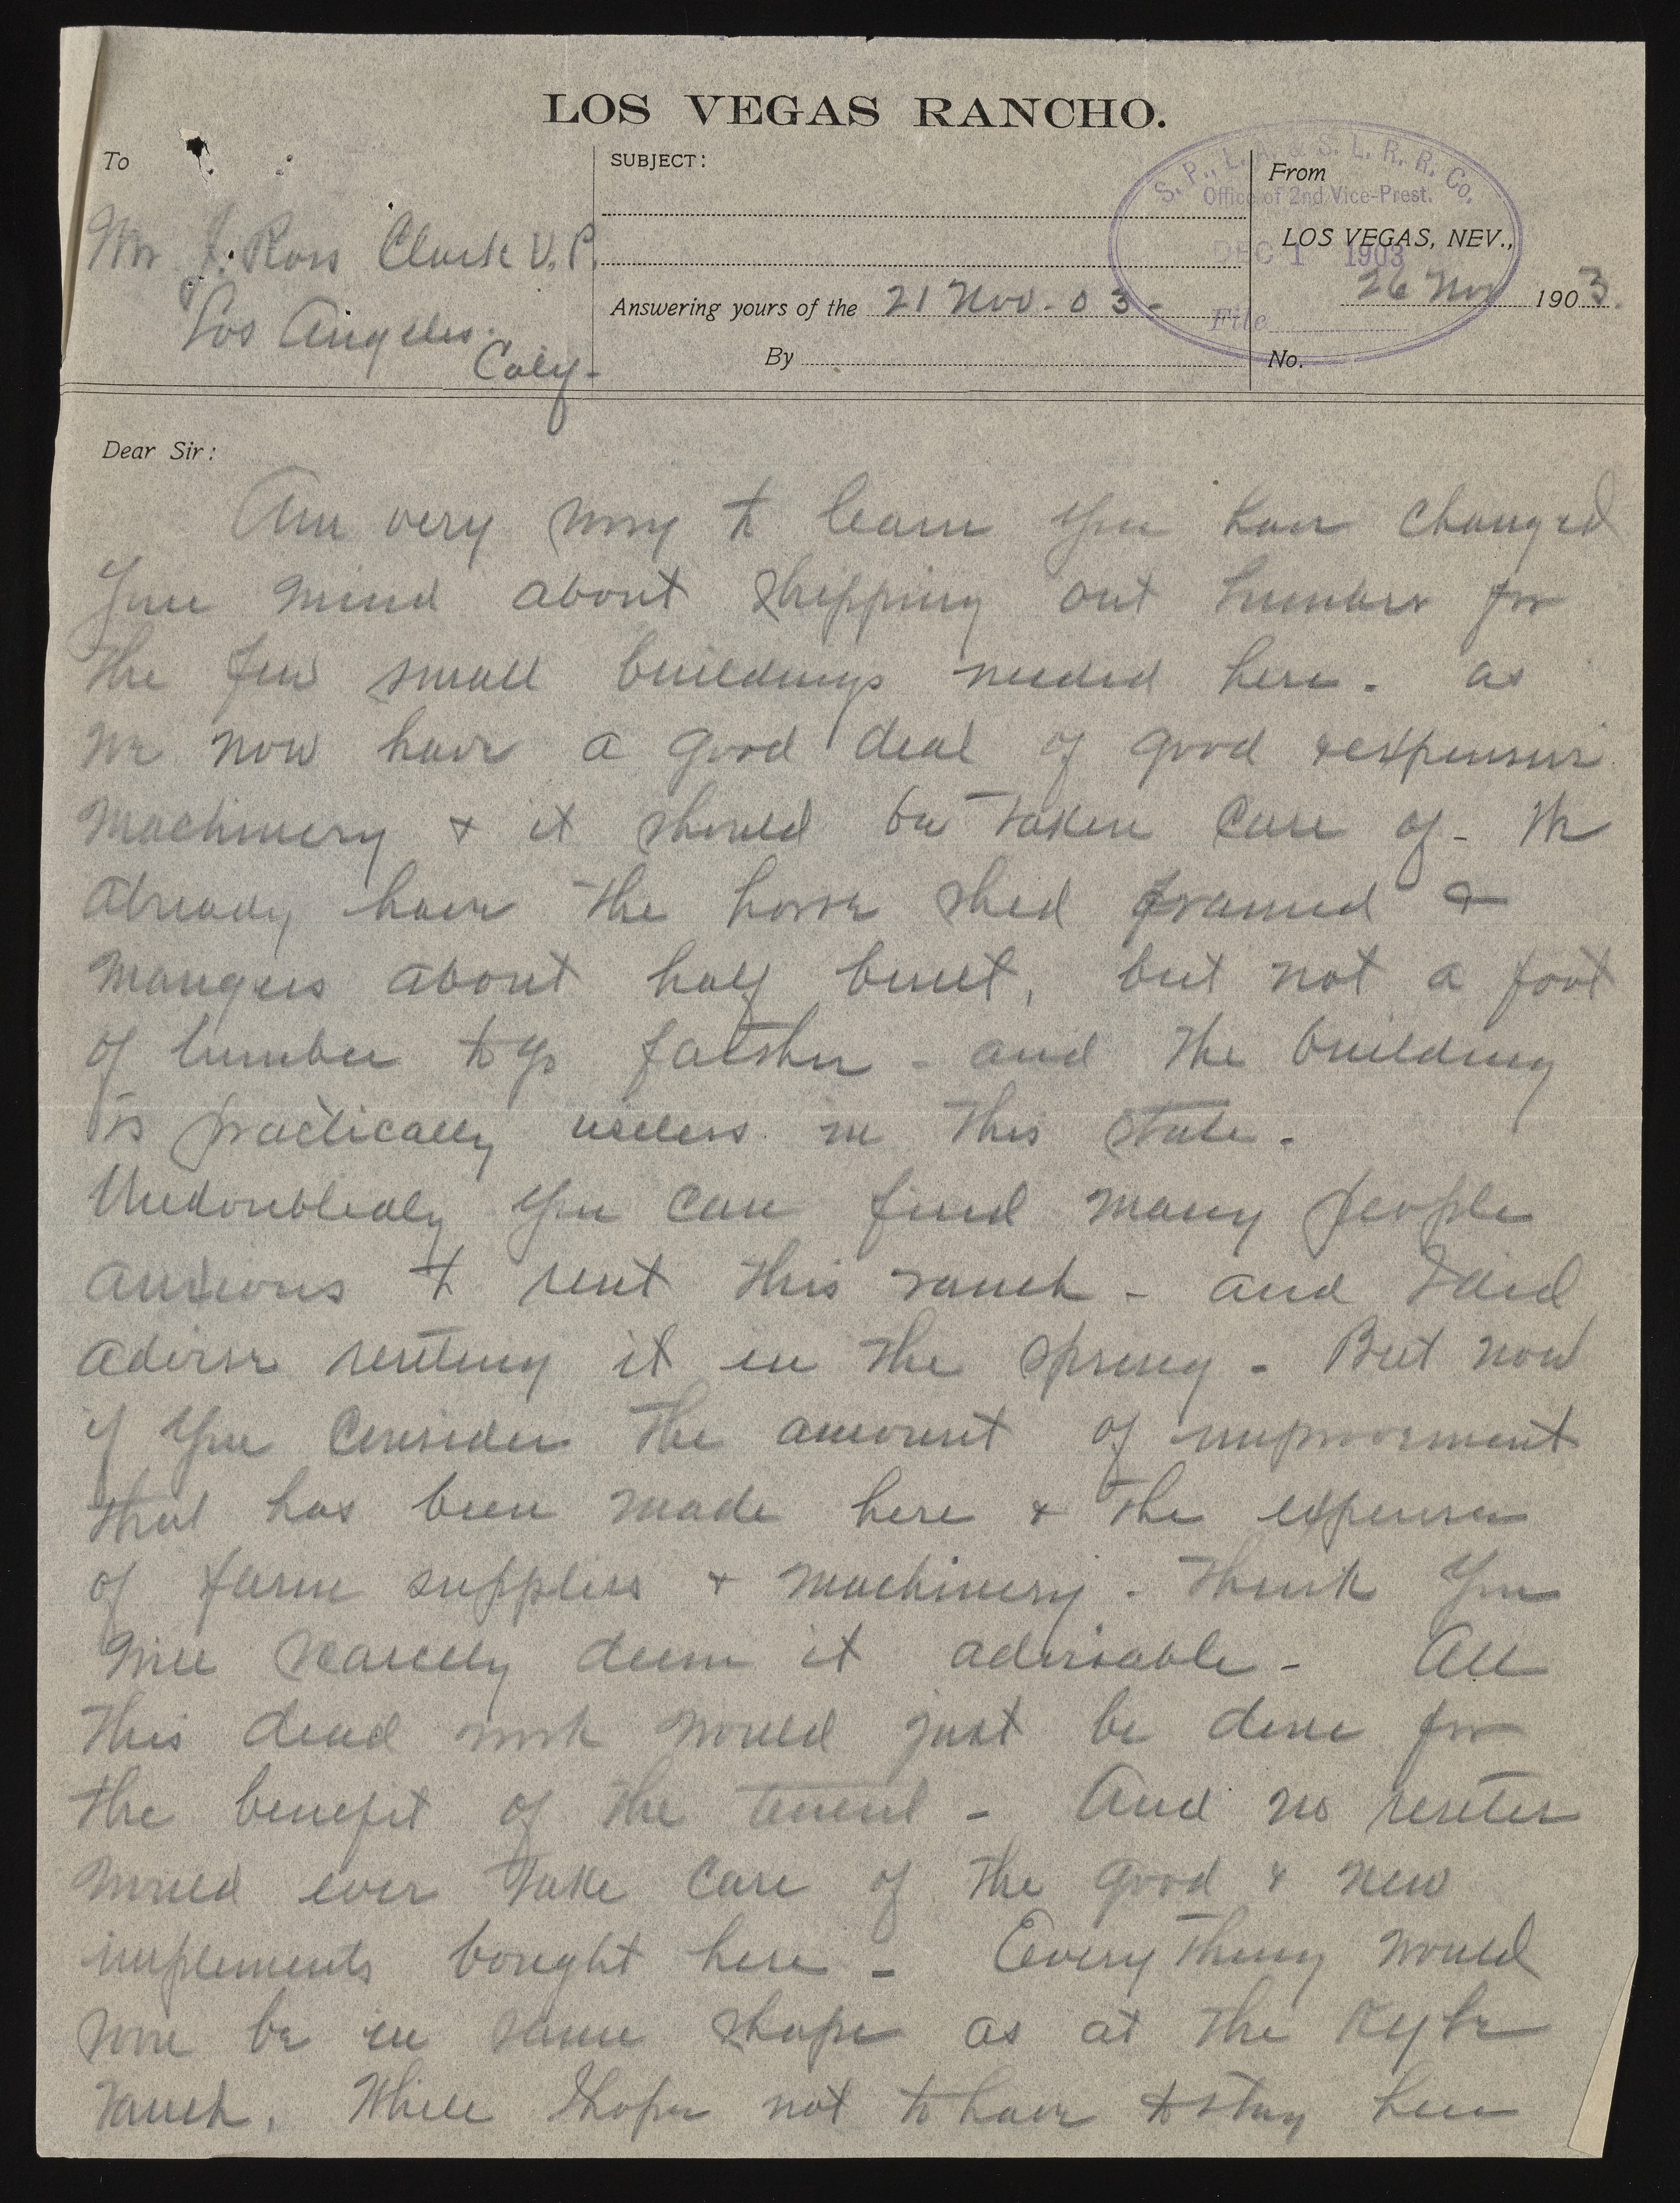 LOS VEGAS RANCHO.
To
SUBJECT:
From
S. P., L. A. & S. L. R. R. Co.
Office of 2nd Vice-Prest.
LOS VEGAS, NEV.,
DEC 1 1903
Mr J. Ross Clark V.P.
Los Angeles.
Caly-
Answering yours of the 21 Nov - 03-
26 Nov 1903.
File
By
No.
Dear Sir:
Am very sorry to learn you have changed
your mind about shipping out lumber for
the few small buildings needed here. as
we now have a good deal of good & expensive
machinery & it should be taken care of - We
already have the horse shed framed &
mangers about half built, but not a foot
of lumber to go farther - and the building
is practically useless in this state.
Undoubtedly you can find many people
anxious to rent this ranch - and I did
advise renting it in the spring - But now
if you consider the amount of improvement
that has been made here & the expense
of farm supplies & machinery - think you
will scarcely deem it advisable - All
this dead work would just be done for
the benefit of the tenent - And no renter
would ever take care of the good & new
implements bought here - Every thing would
soon be in same shape as at the Kyle
ranch. While I hope not to have to stay here